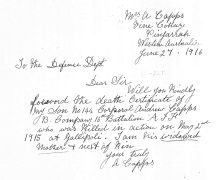 Mrs A Capps
Irene Cottage
Pinjarrah
Western Australia
June 27. 1916
To the Defence Dept
Dear Sir
Will you Kindly
forward the death Certificate of
my Son No 144 Corporal Andrew Capps
B. Company 15th Battalion A I F
who was killed in action on May 1st
1915 at Gallipoli. I am his widowed
Mother & next of Kin
Yours truly
A Capps